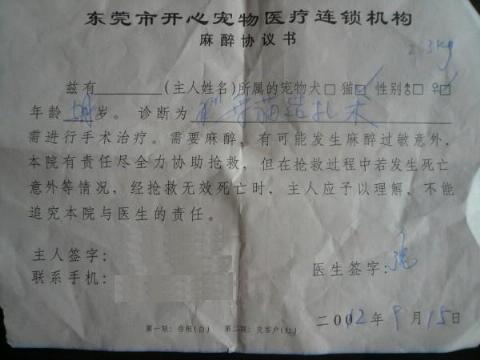 东莞市开心宠物医疗连锁机构
麻醉协议书
2.3kg
兹有________(主人姓名)所属的宠物犬□猫☑性别♂□♀☑
年龄 岁。诊断为 结扎术
需进行手术治疗。需要麻醉，有可能发生麻醉过敏意外，
本院有责任尽全力协助抢救，但在抢救过程中若发生死亡
意外等情况，经抢救无效死亡时，主人应予以理解，不能
追究本院与医生的责任。
主人签字：
医生签字：
联系手机：
二0012年9月15日
第一联：存根(白) 第二联：交客户(红)